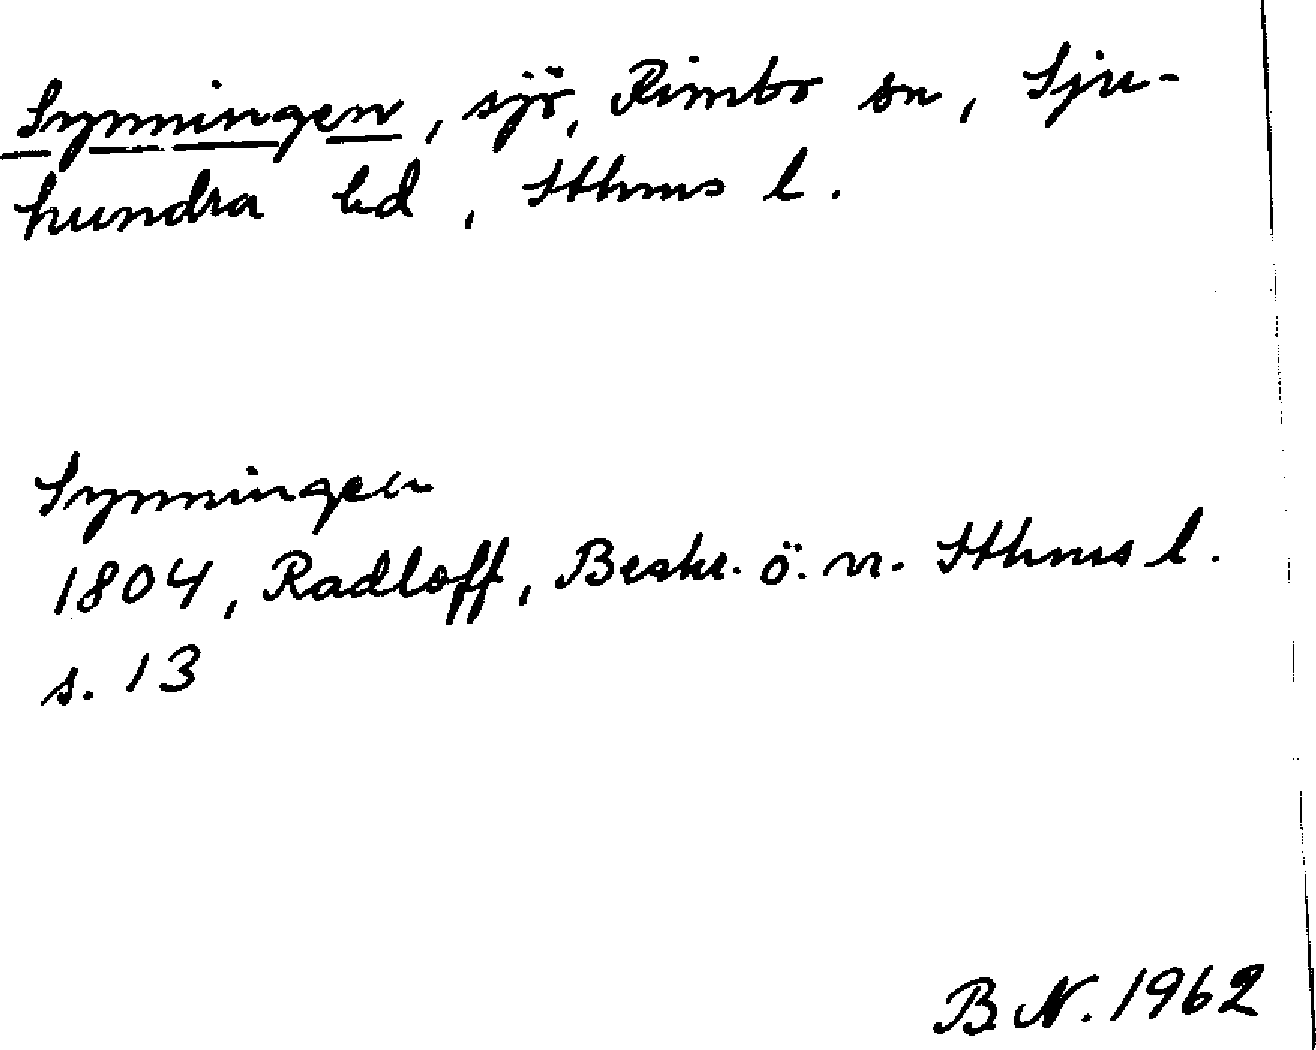 Synningen, sjö, Rimbo sn, Sju-
hundra hd, Sthms l.
Synningen
1804, Radloff, Beskr. ö. n. Sthms l.
s. 13
B.N. 1962